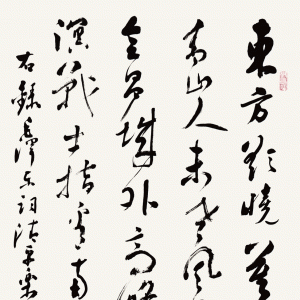 東方欲曉莫
青山人未老風
會昌城外高峰
溟戰士指看南
右錄毛澤东詞清平樂